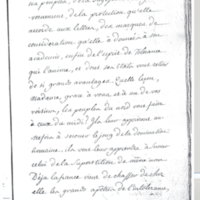 de la protection qu'elle
accorde aux lettres, des marques de
considération qu'elle a données à son
académie, enfin de l'esprit de tolérance
qui l'anime, et dont ses états vont retirer
de si grands avantages. Quelle leçon,
madame, grace à vous et à un de vos
voisins, les peuples du nord vont faire
à ceux du midi! Ils leur apprennent
à secouer le joug de la
ils vont leur apprendre à
celui de la superstition de même
Déja la france vient de chasser de chez
elle les grands apôtres de l'intolérance,